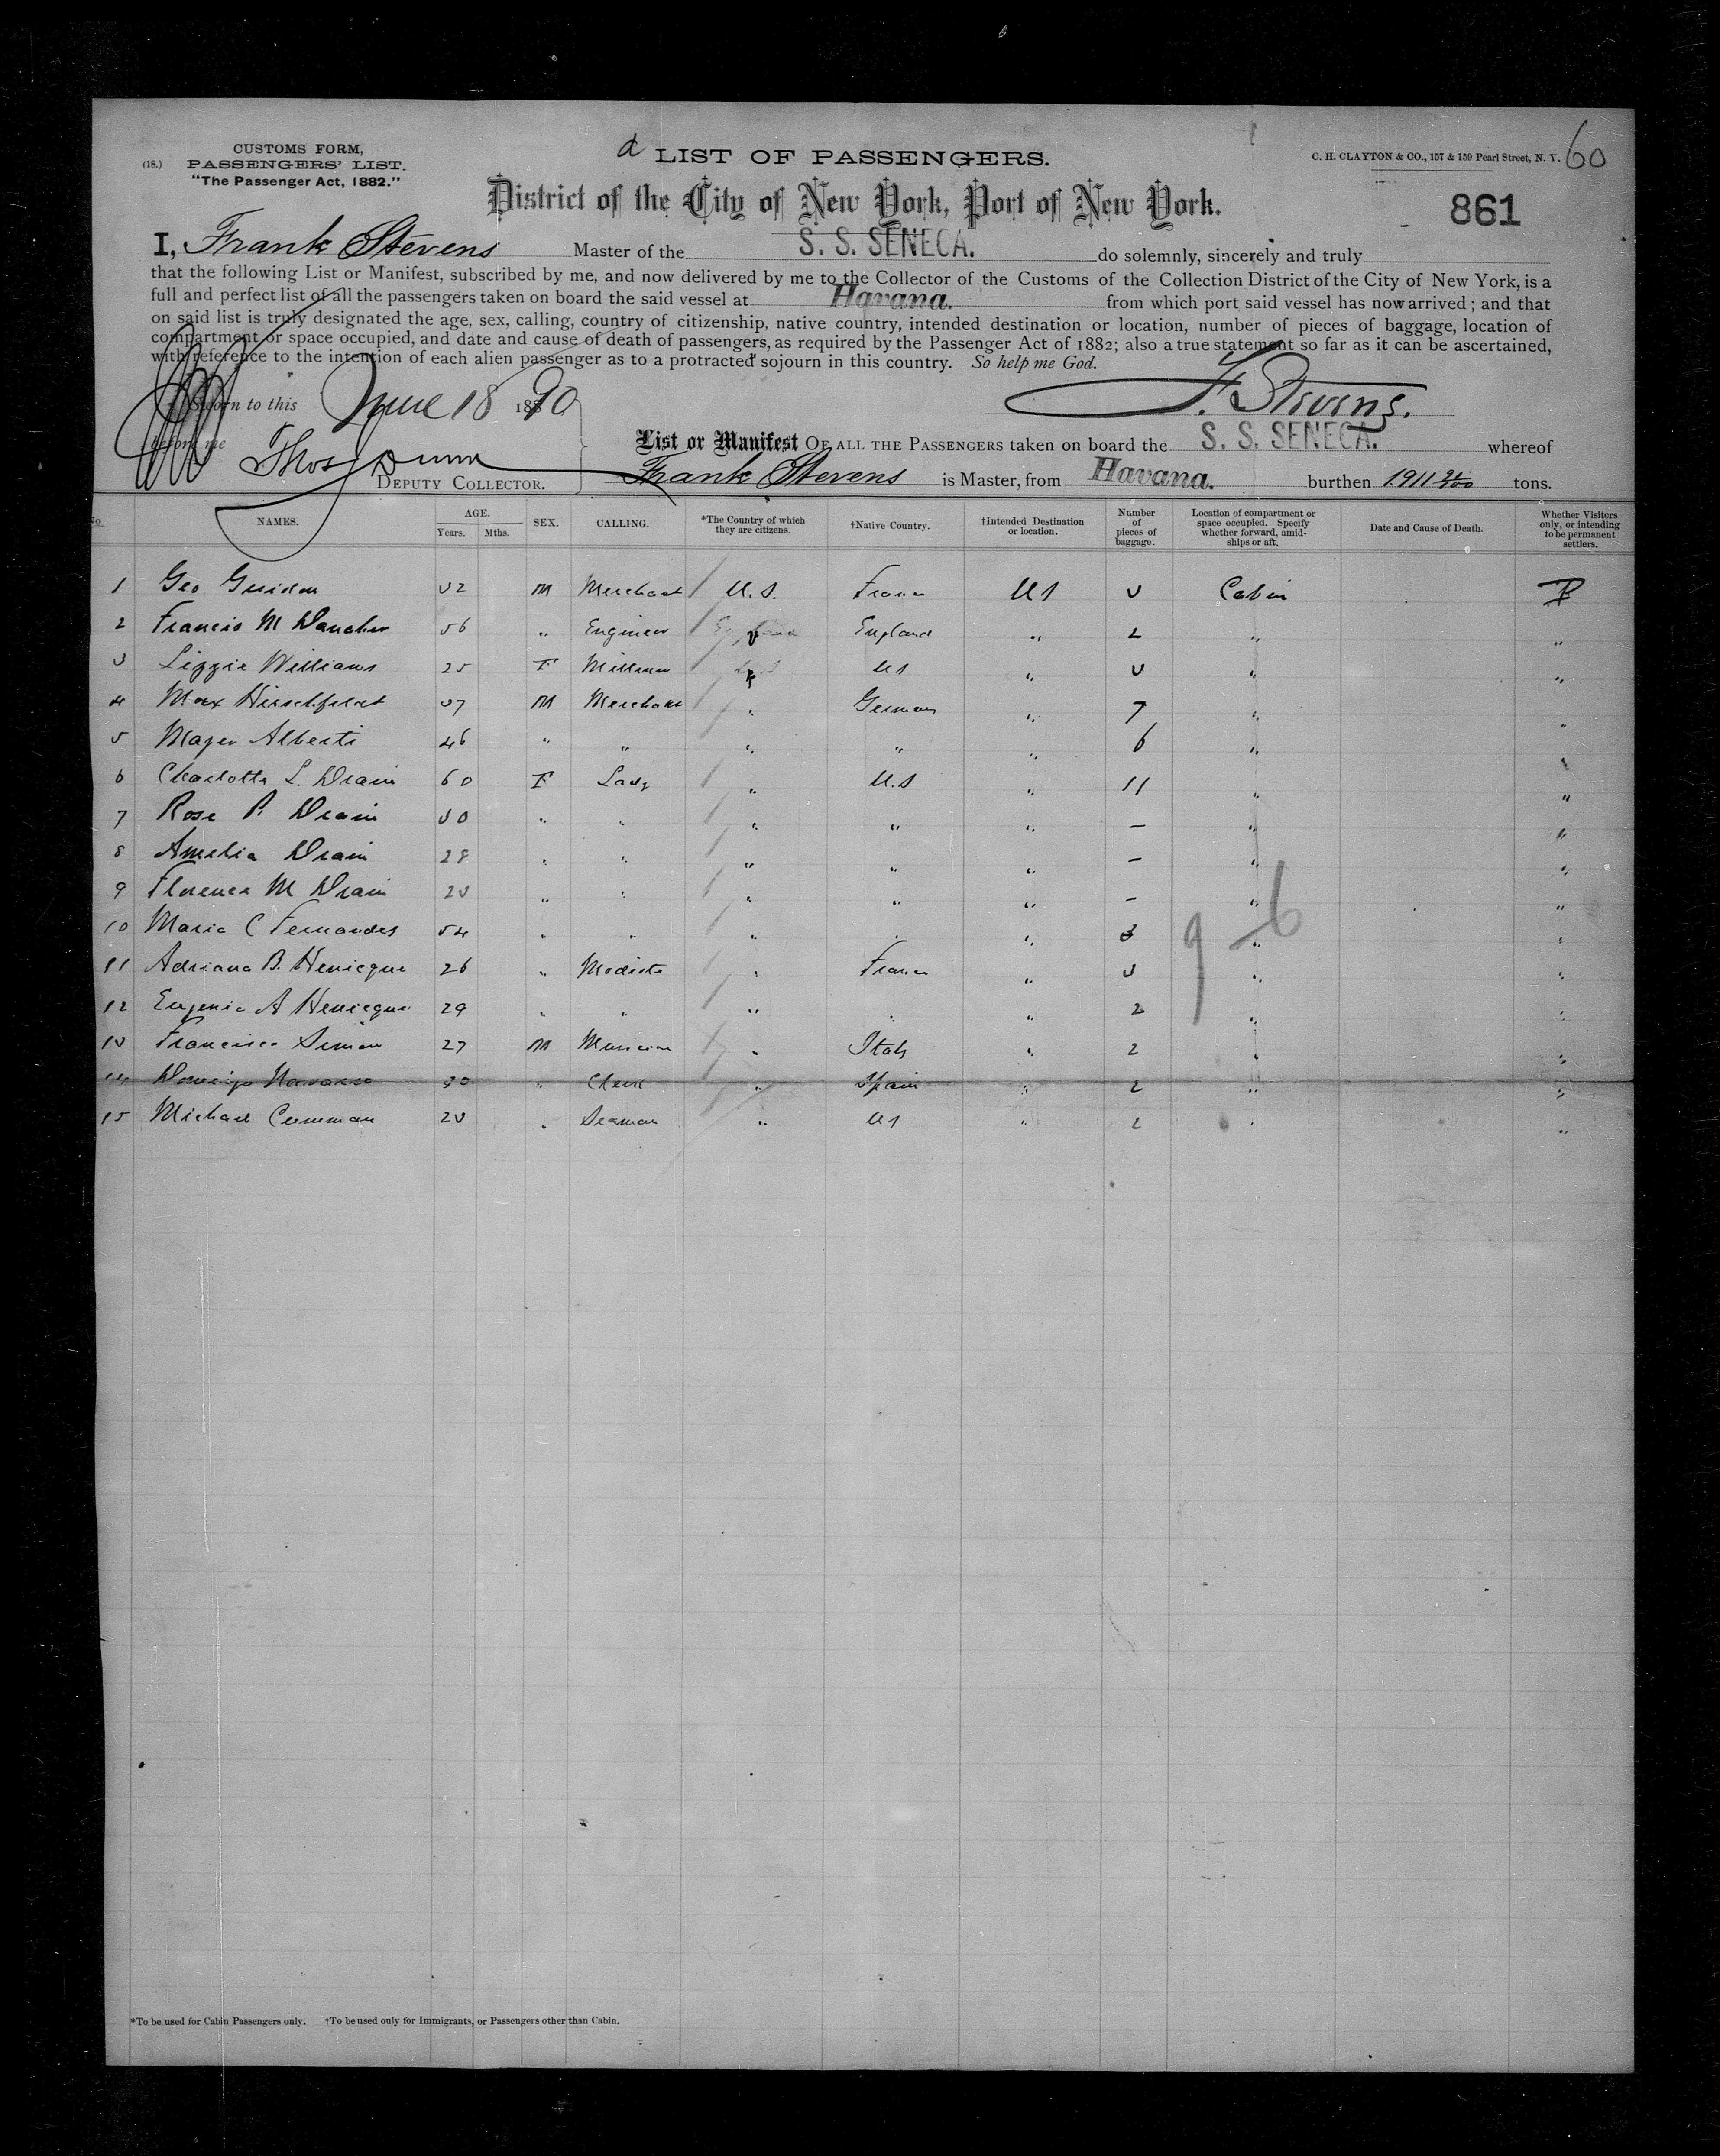 60
CUSTOMS FORM,
(18.) PASSENGERS' LIST.
"The Passenger Act, 1882."
a LIST OF PASSENGERS.
C. H. CLAYTON & CO., 157 & 159 Pearl Street, N. Y.
District of the City of New York, Port of New York.
861
I, Frank Stevens Master of the S. S. SENECA. do solemnly, sincerely and truly
that the following List or Manifest, subscribed by me, and now delivered by me to the Collector of the Customs of the Collection District of the City of New York, is a
full and perfect list of all the passengers taken on board the said vessel at Havana. from which port said vessel has now arrived; and that
on said list is truly designated the age, sex, calling, country of citizenship, native country, intended destination or location, number of pieces of baggage, location of
compartment or space occupied, and date and cause of death of passengers, as required by the Passenger Act of 1882; also a true statement so far as it can be ascertained,
with reference to the intention of each alien passenger as to a protracted sojourn in this country. So help me God.
Sworn to this June 18 1890 F. Stevens.
before me Thos Dunn
DEPUTY COLLECTOR.
List or Manifest OF ALL THE PASSENGERS taken on board the S. S. SENECA. whereof
Frank Stevens is Master, from Havana. burthen 1911 tons.
No NAMES. AGE. Years. Mths. SEX. CALLING. *The Country of which they are citizens. †Native Country. †Intended Destination or location. Number of pieces of baggage. Location of compartment or space occupied. Specify whether forward, amidships or aft. Date and Cause of Death. Whether Visitors only, or intending to be permanent settlers.
1 Geo 32 M Merchant U.S. France US 3 Cabin
2 Francis M 56 " Engineer England " 2 " "
3 Lizzie Williams 25 F Milliner US " 3 " "
4 Max Hirschfeldt 37 M Merchant " German " 7 " "
5 Mayer Alberti 46 " " " " " 6 " "
6 Charlotte L. Drain 60 F Lady " U.S " 11 " "
7 Rose P. Drain 30 " " " " " — " "
8 Amelia Drain 28 " " " " " — " "
9 Florence M Drain 23 " " " " " — " "
10 Maria C Fernandes 54 " " " " " 3 " "
11 Adriana B. Henicque 26 " Modiste " France " 3 " "
12 Eugenia A Henicque 29 " " " " " 2 " "
13 Francisco Simon 27 M Musician " Italy " 2 " "
14 Domingo Navarro 30 " Clerk " Spain " 2 " "
15 Michael 23 " Seaman " US " 2 " "
9 6
*To be used for Cabin Passengers only. †To be used only for Immigrants, or Passengers other than Cabin.